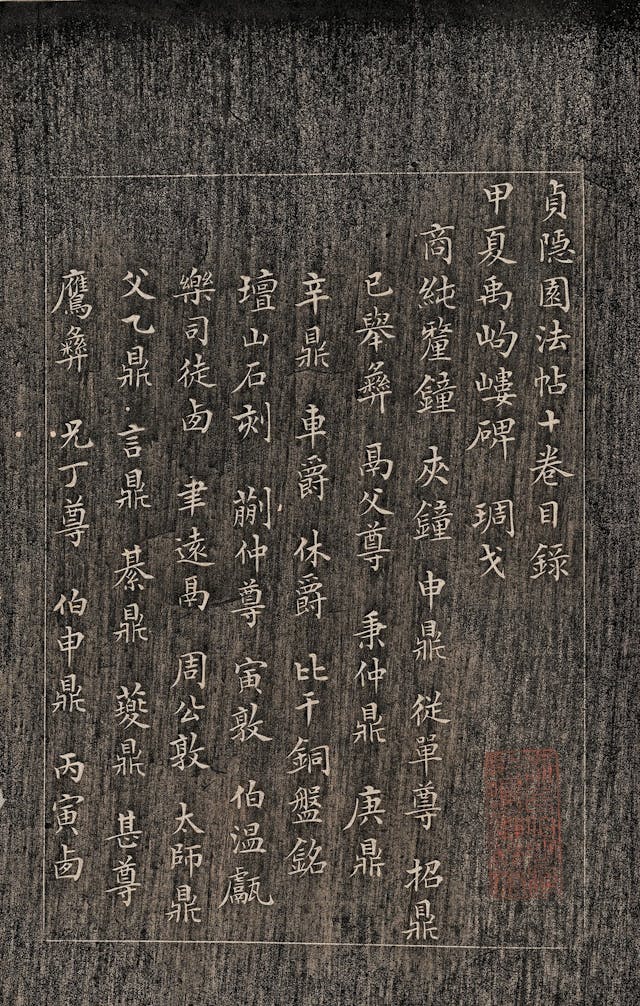 貞隱園法帖十卷目錄
甲夏禹岣嶁碑 琱戈
商純釐鐘 夾鐘 申鼎 從單尊 招鼎
已舉彝 鬲父尊 秉仲鼎 庚鼎
辛鼎 車爵 休爵 比干銅盤銘
壇山石刻 蒯仲尊 寅敦 伯温甗
樂司徒卣 聿遠鬲 周公敦 太師鼎
父乙鼎 言鼎 綦鼎 鼎 甚尊
鷹彝 兄丁尊 伯申鼎 丙寅卣